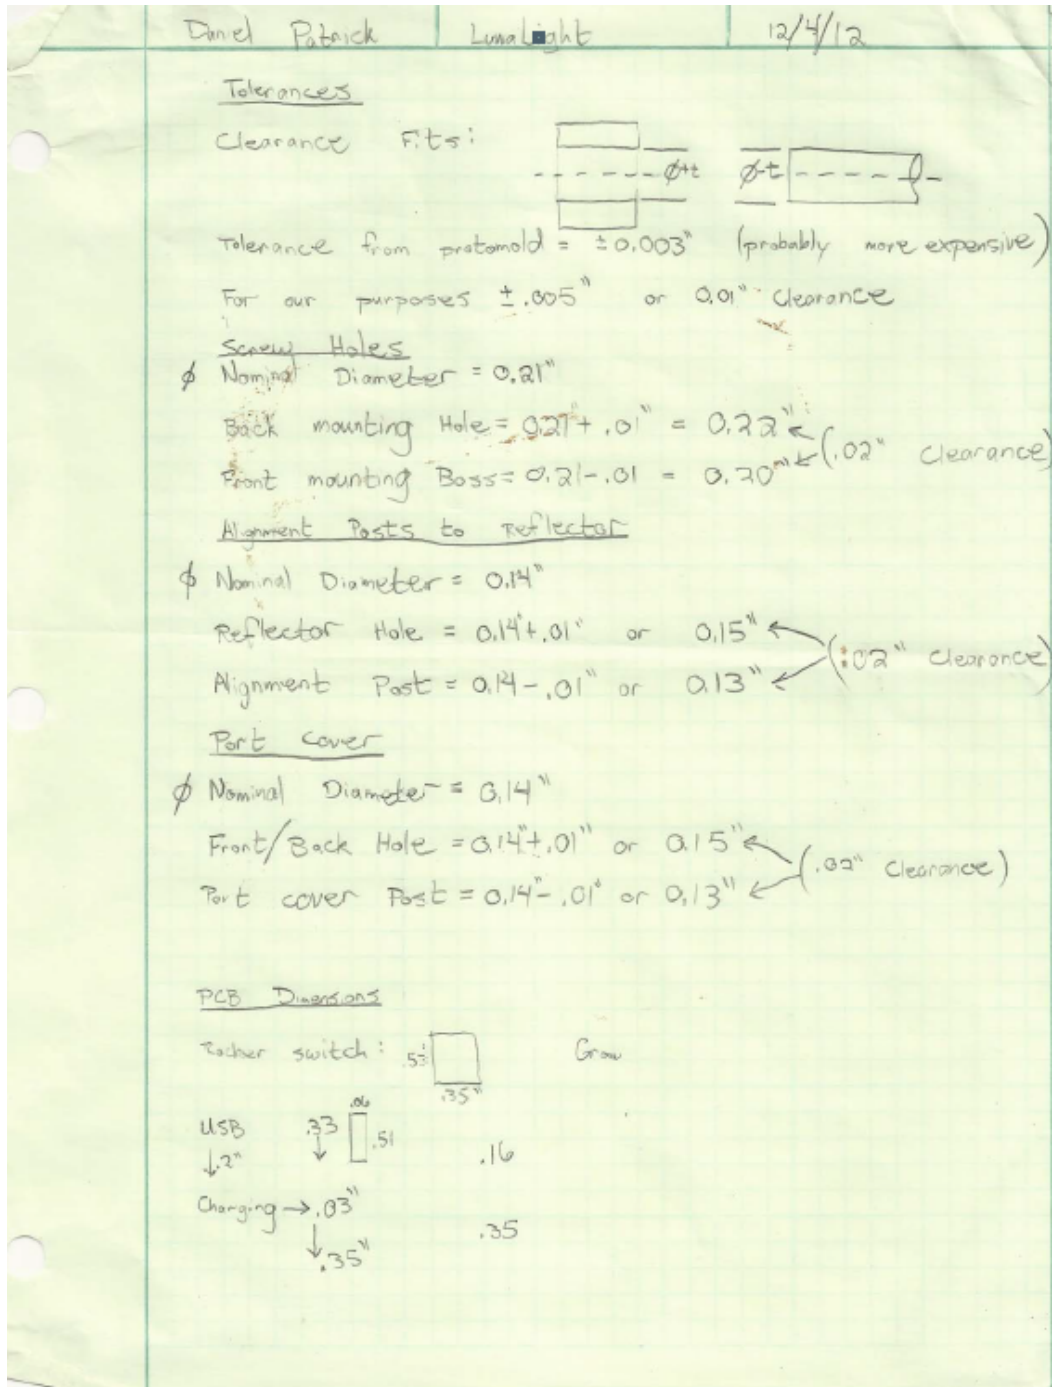 Daniel Patrick LunaLight 12/4/12
Tolerances
Clearance Fits:
ϕ+t ϕ-t
Tolerance from protomold = ±0.003" (probably more expensive)
For our purposes ±.005" or 0.01" clearance
Screw Holes
ϕ Nominal Diameter = 0.21"
Back mounting Hole = 0.21"+.01" = 0.22"
(.02" clearance)
Front mounting Boss = 0.21-.01 = 0.20"
Alignment Posts to Reflector
ϕ Nominal Diameter = 0.14"
Reflector Hole = 0.14"+.01" or 0.15"
(.02" clearance)
Alignment Post = 0.14-.01" or 0.13"
Port cover
ϕ Nominal Diameter = 0.14"
Front/Back Hole = 0.14"+.01" or 0.15"
(.02" clearance)
Port cover Post = 0.14"-.01" or 0.13"
PCB Dimensions
Rocker switch: .53"
.35"
.06
USB .33 .51
.2" .16
Charging → .03"
.35" .35